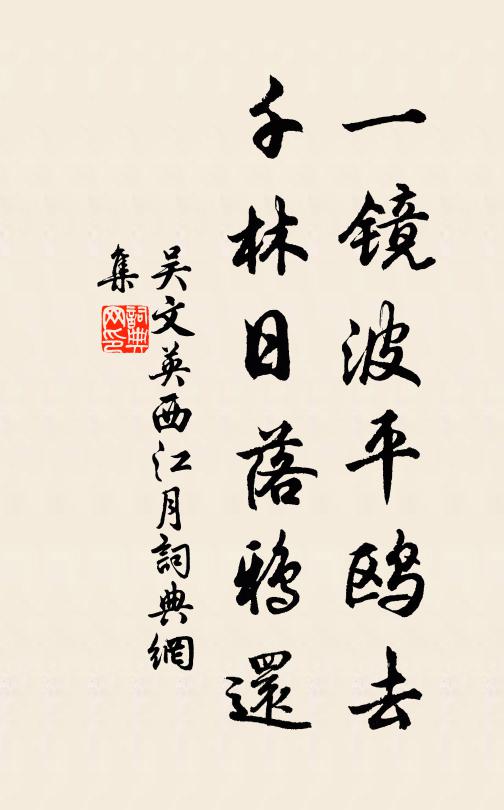 一镜波平鸥去
千林日落鸦還
吴文英西江月詞典網
集
詞典网印